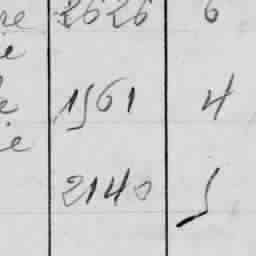 re 2626 6
ie
e 1561 4
ie
2140 5